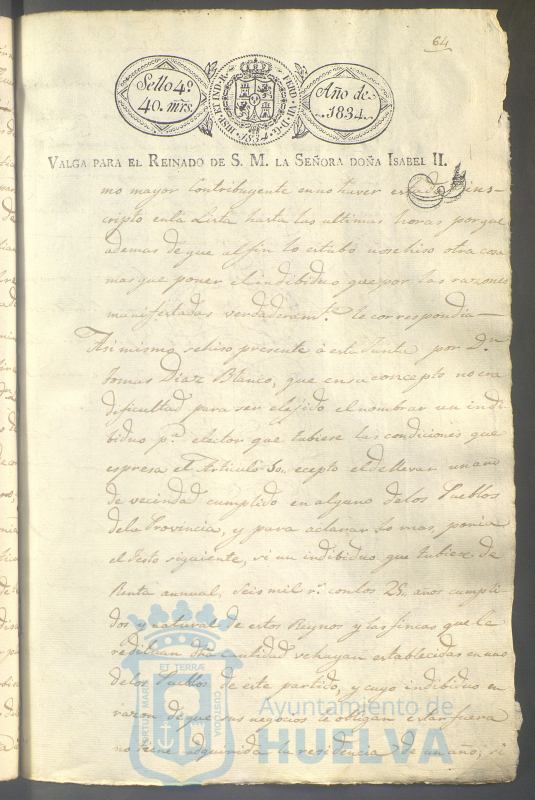 64
Sello 4º
40. mrs.
HISP. ET IND. R.
Año de
1834.
VALGA PARA EL REINADO DE S. M. LA SEÑORA DOÑA ISABEL II.
mo mayor Contribuyente en no haver estado ines-
cripto en la Lista hasta las ultimas horas porque
ademas de que al fin lo estubo no se hiso otra cosa
mas que poner el indibiduo que por las razones
manifestadas verdaderamte. le correspondia—
Asimismo se hiso presente á esta Junta por Dn.
Tomas Diaz Blanco, que en su concepto no era
dificultad para ser elejido el nombrar un indi-
biduo pa. elector que tubiese las condiciones que
espresa el Articulo 30. ecepto el de llevar un año
de vecindad cumplido en alguno de los Pueblos
de la Provincia, y para aclarar lo mas, ponia
el Testo siguiente, si un indibiduo que tubiese de
Renta annual, Seis mil rs. con los 25. años cumpli-
dos y natural de estos Reynos y las fincas que le
redituan dha cantidad se hayan establecidas en uno
de los Pueblos de este partido, y cuyo indibiduo en
razon de que sus negocios le obligan estar fuera
no tiene adquirida la residencia de un año, si
PORTUS MARIS
ET TERRÆ
CUSTODIA
Ayuntamiento de
HUELVA